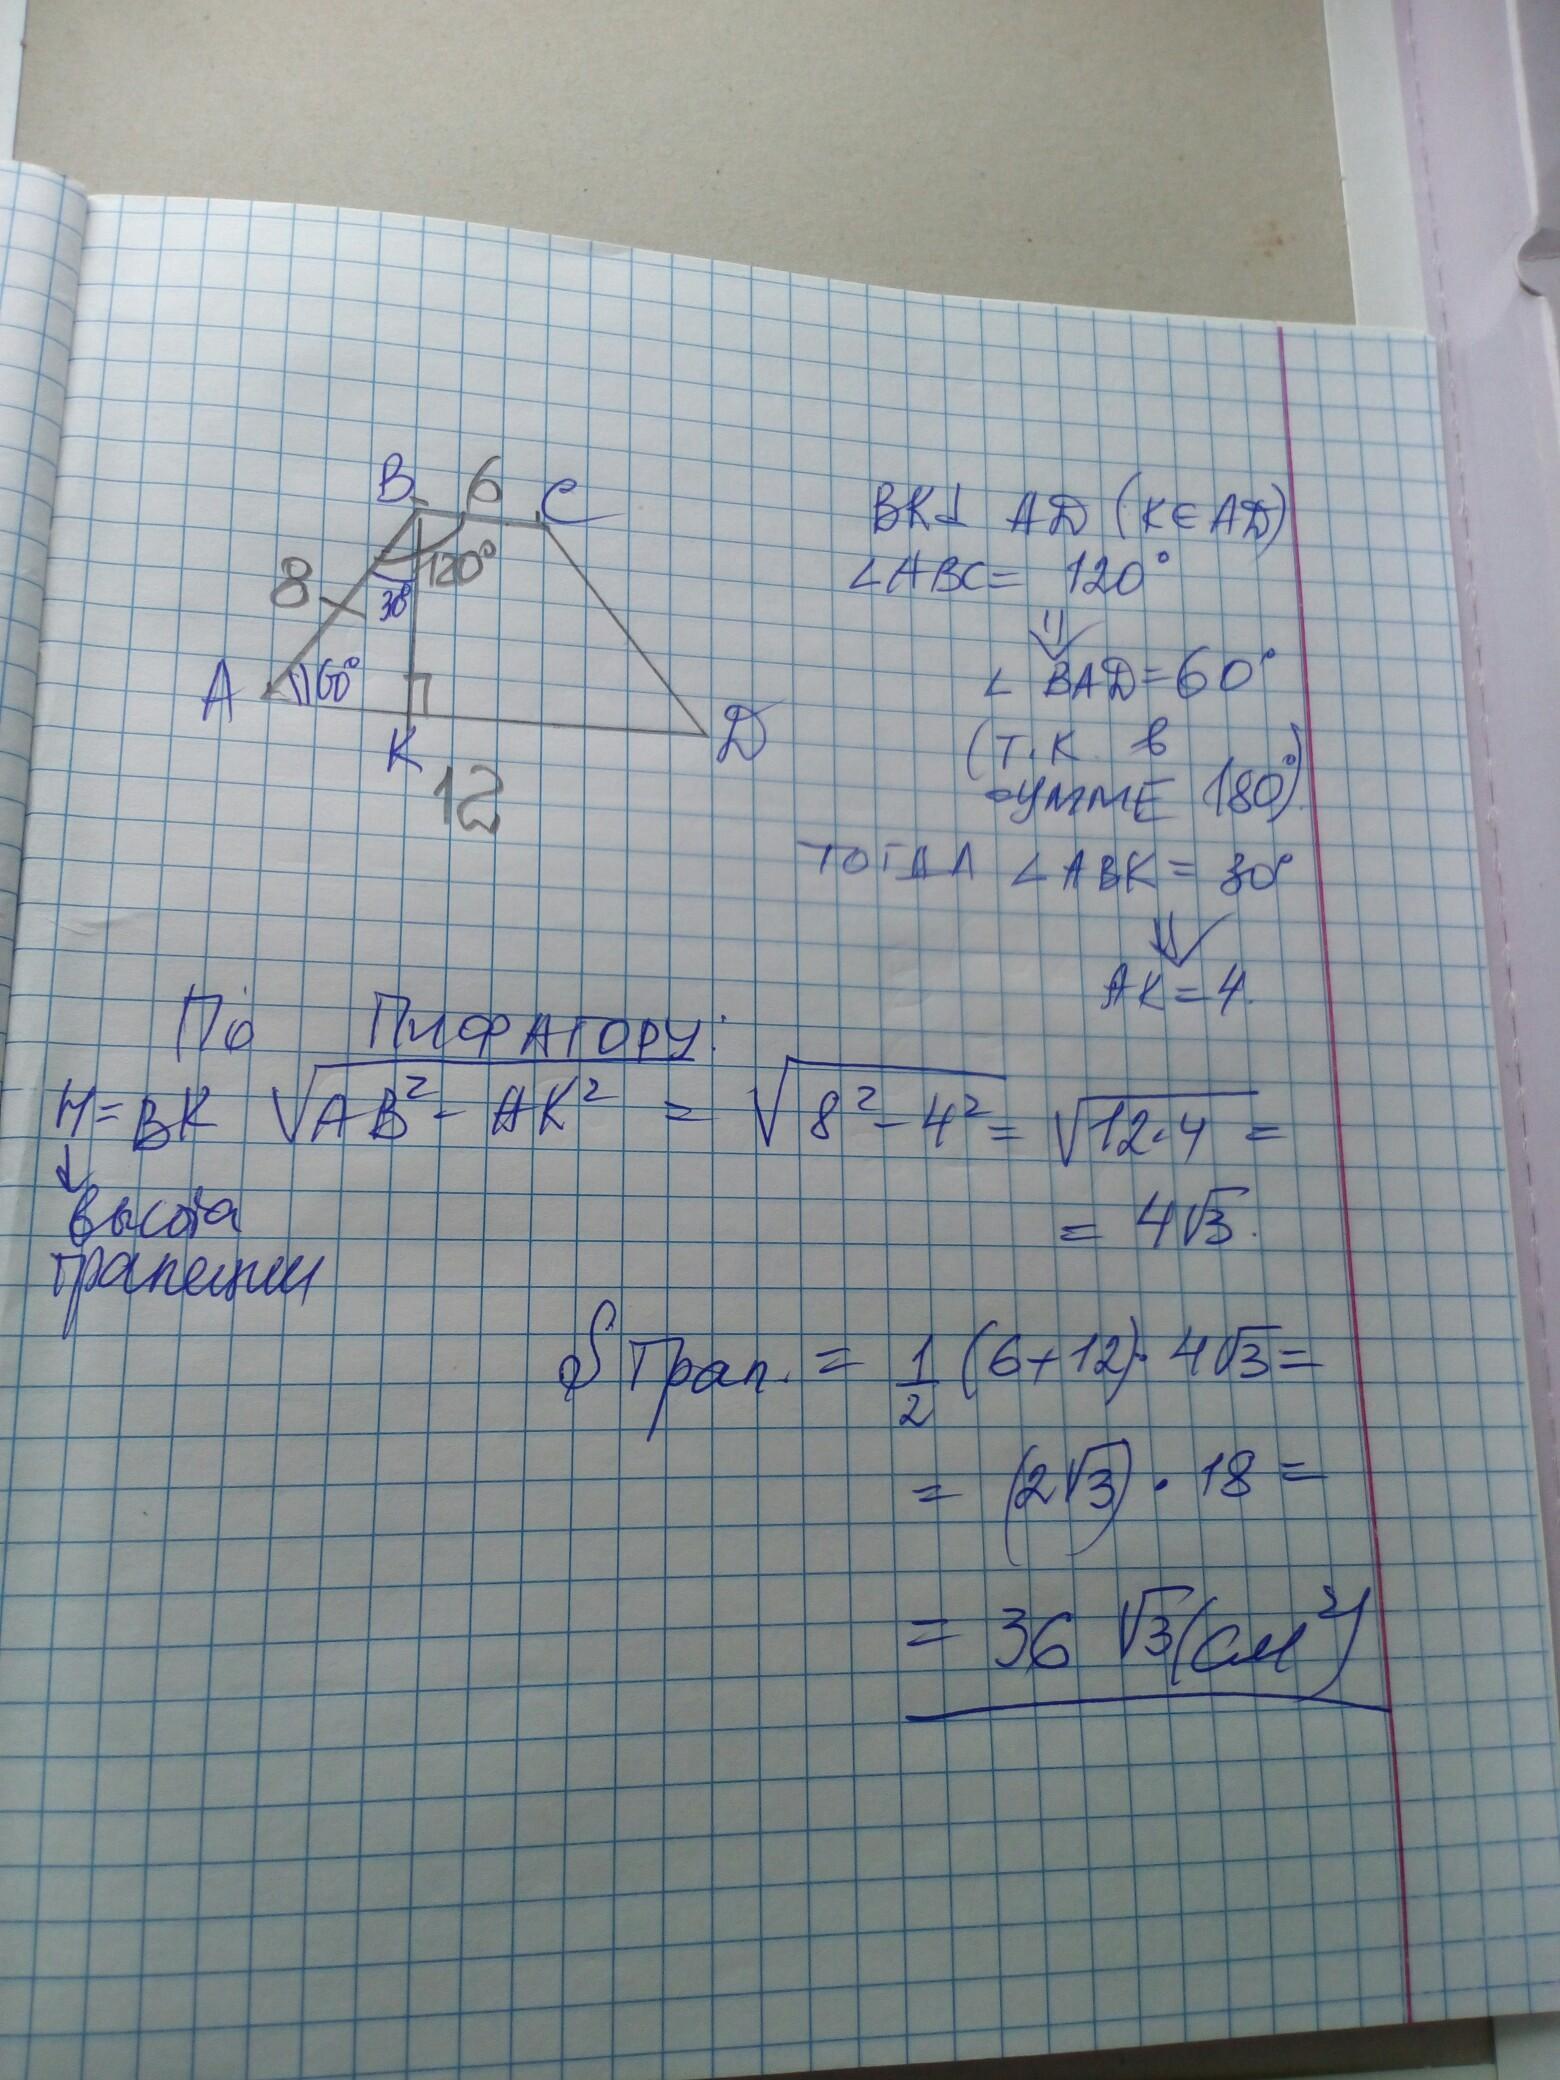 B 6 C
8 120°
30°
A 60°
K D
12
BK⊥ AD (K∈AD)
∠ABC= 120°
⇓
∠ BAD=60°
(т.к. в
сумме 180°)
тогда ∠ABK = 30°
⇓
AK=4.
По Пифатору:
H=BK √AB² - AK² = √8² - 4² = √12·4 =
↓
высота
трапеции
= 4√3.
S трап. = 1/2 (6+12)· 4√3 =
= (2√3) · 18 =
= 36 √3 (см²)